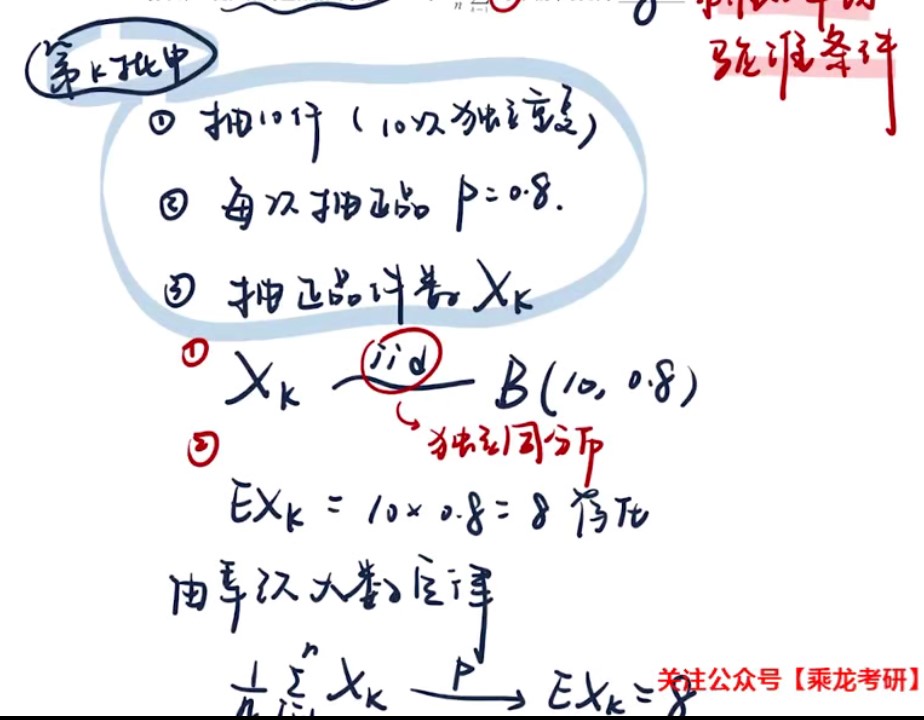 8
验准条件
第K批中
① 抽10件（10次独立重复）
② 每次抽正品 P=0.8.
③ 抽正品件数 X_K
① X_K iid B(10, 0.8)
独立同分布
②
EX_K = 10×0.8=8 存在
由辛钦大数定律
1/n Σ^n X_K P→ EX_K=8
关注公众号【乘龙考研】